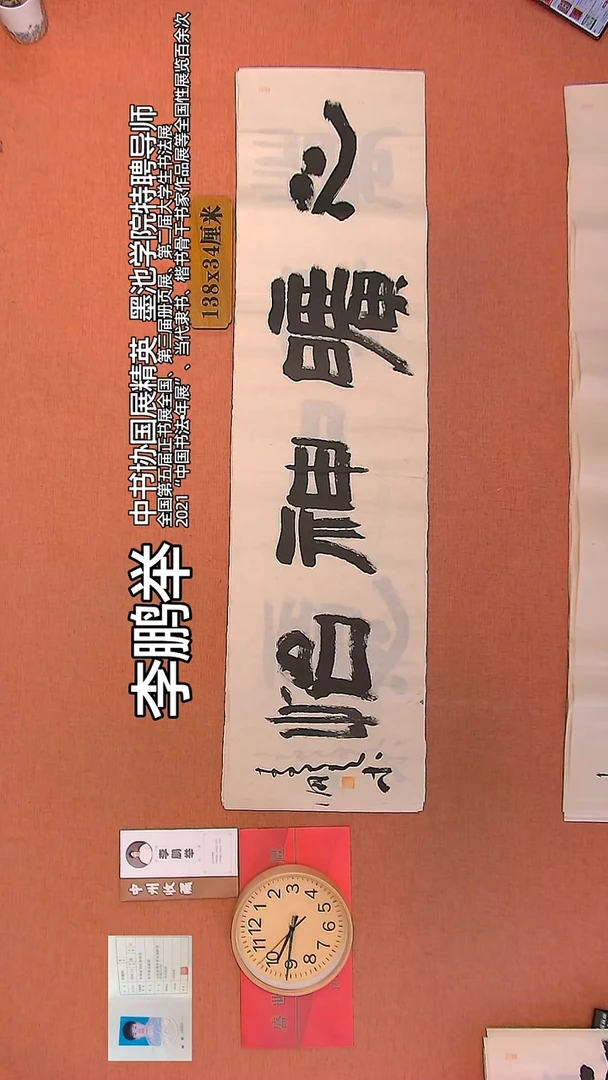 李鹏举
中书协国展精英 墨池学院特聘导师
全国第五届正书展全国、第三届册页展、第二届大学生书法展
2021“中国书法·年展”、当代隶书、楷书骨干书家作品展等全国性展览百余次
138x34厘米
心曠神怡
李鹏举
中州收藏
12
1
2
3
4
5
6
7
8
9
10
11